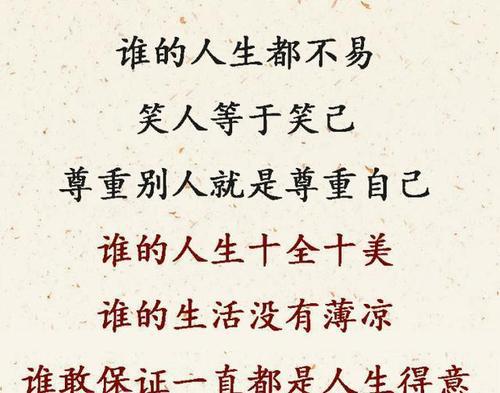 谁的人生都不易
笑人等于笑己
尊重别人就是尊重自己
谁的人生十全十美
谁的生活没有薄凉
谁敢保证一直都是人生得意